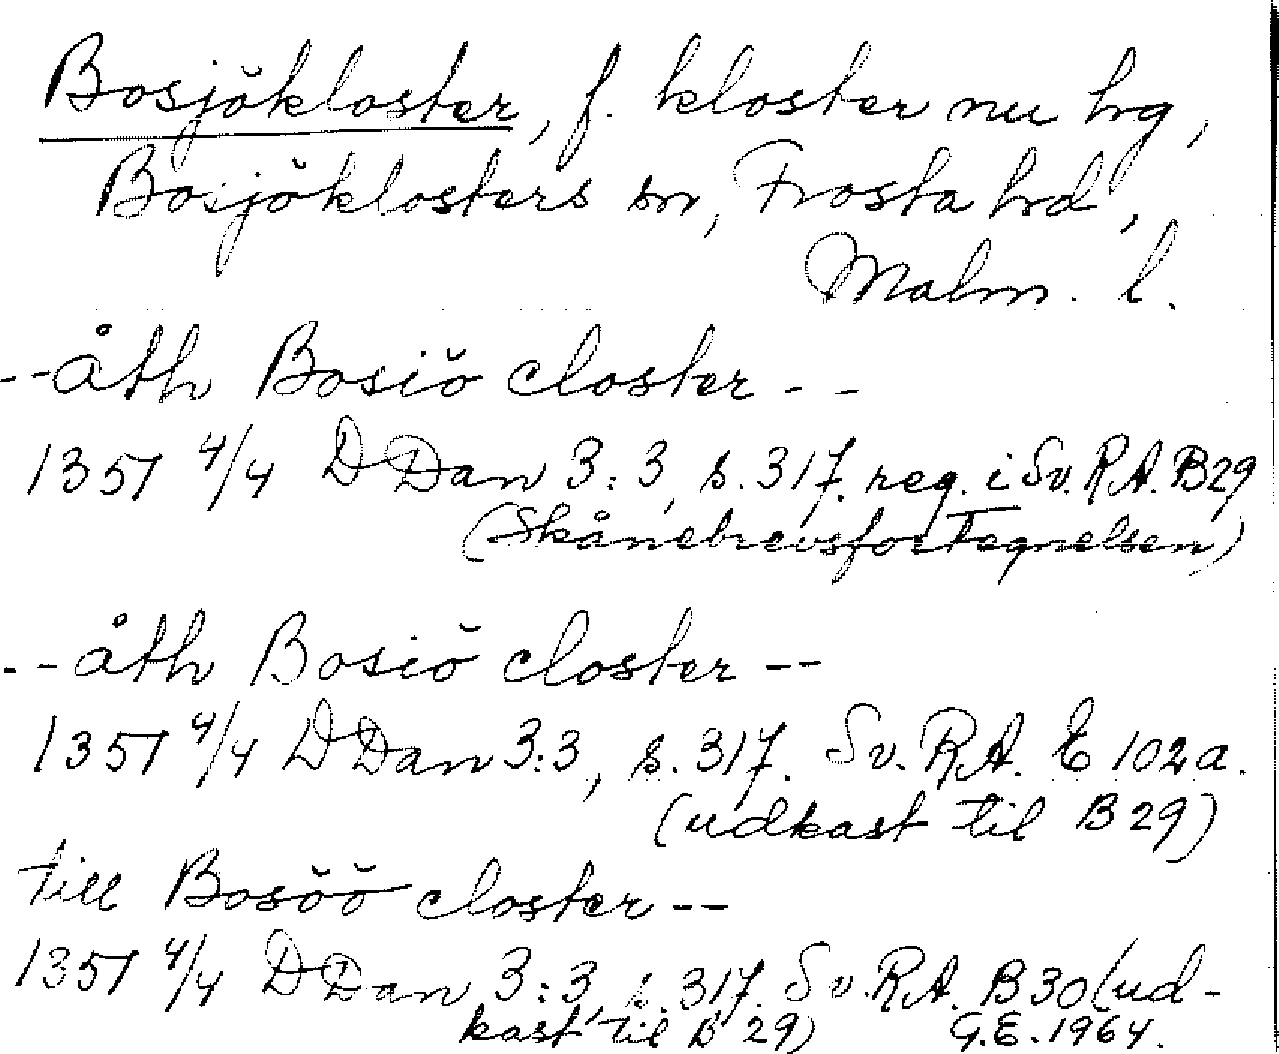 Bosjökloster, f. kloster nu hrg,
Bosjöklosters sn, Frosta hrd,
Malm. l.
--åth Bosiö closter--
1351 4/4 DDan 3:3, s. 317. reg. i Sv. RA. B29
(Skånebrevsfortegnelsen)
--åth Bosiö closter--
1351 4/4 DDan 3:3, s. 317. Sv. RA. E 102a.
(udkast til B 29)
till Bosöö closter--
1351 4/4 DDan 3:3, s. 317. Sv. RA. B30 (ud-
kast til B 29) G.E. 1964.